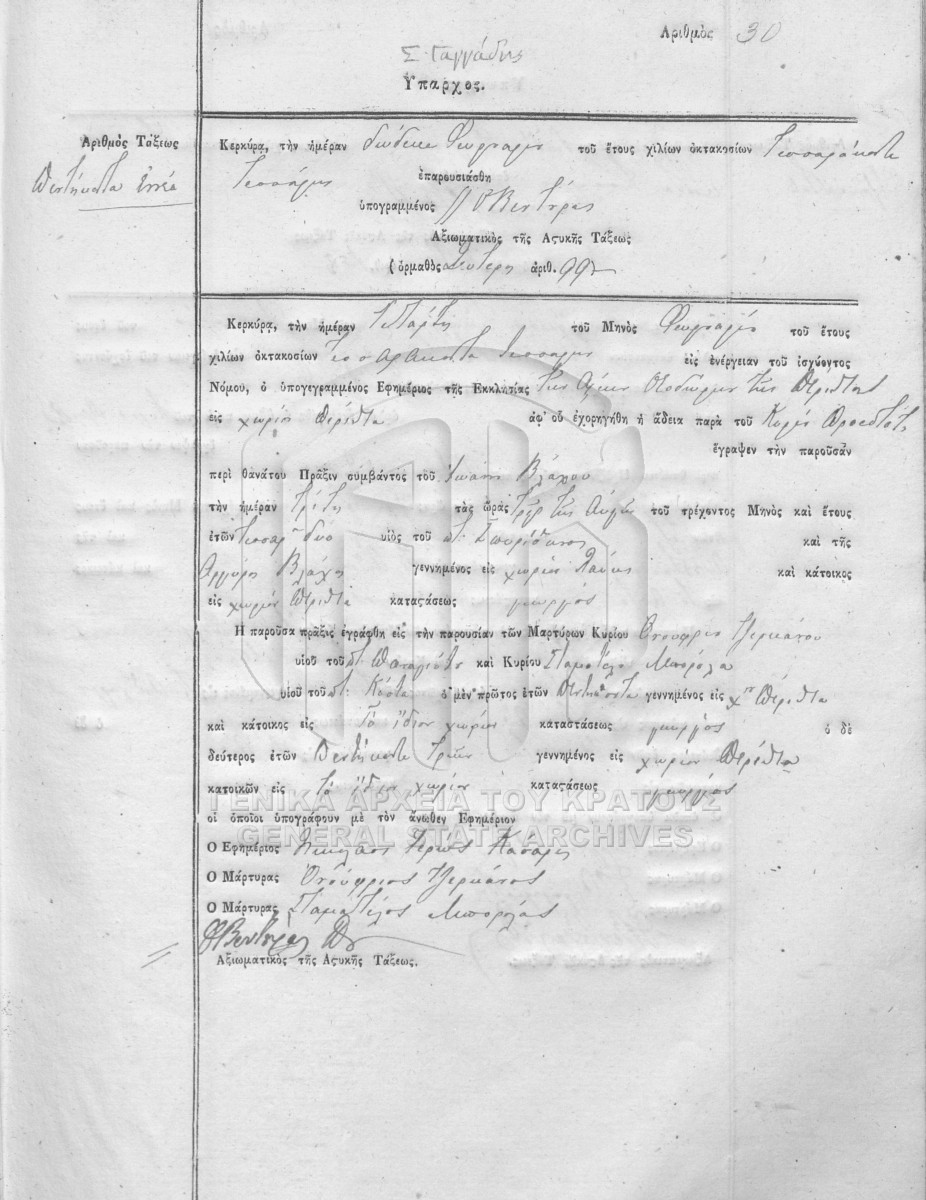 Αριθμὸς 30
Σ. Γαγγάδης
Ὕπαρχος.
Αριθμὸς Τάξεως
Πεντήκοντα ἐννέα
Κερκύρα, τὴν ἡμέραν δώδεκα Φευρουαρίου τοῦ ἔτους χιλίων ὀκτακοσίων Τεσσαράκοντα
Τεσσάρων ἐπαρουσιάσθη
ὑπογραμμένος Βεντύρας
Αξιωματικὸς τῆς Αϛυκῆς Τάξεως
(ὁρμαθὸς Δευτερη ἀριθ. 992
Κερκύρα, τὴν ἡμέραν Τετάρτη τοῦ Μηνὸς Φευρουαρίου τοῦ ἔτους
χιλίων ὀκτακοσίων Τεσσαράκοντα τεσσάρων εἰς ἐνέργειαν τοῦ ἰσχύοντος
Νόμου, ὁ ὑπογεγραμμένος Εφημέριος τῆς Εκκλησίας τῶν Ἁγίων Θεοδώρων τῆς Περίθιας
εἰς χωρίον Περίθια ἀφ' οὗ ἐχορηγήθη ἡ ἄδεια παρὰ τοῦ Κυρίου Προεστότος
ἔγραψεν τὴν παροῦσαν
περὶ θανάτου Πρᾶξιν συμβάντος τοῦ Ἰωάννη Βλάχου
τὴν ἡμέραν Τρίτη τὰς ὥρας τρεῖς τῆς Αὐγῆς τοῦ τρέχοντος Μηνὸς καὶ ἔτους
ἐτῶν τεσσαρ δύο υἱὸς τοῦ ποτ: Σπυρίδωνος καὶ τῆς
Αργυρῆς Βλάχη γεννημένος εἰς χωρίον Λάυκι καὶ κάτοικος
εἰς χωρίον Περίθια καταϛάσεως γεωργός
Η παροῦσα πρᾶξις ἐγράφθη εἰς τὴν παρουσίαν τῶν Μαρτύρων Κυρίου Ὀνούφριου Τζερμάνου
υἱοῦ τοῦ ποτ: Παναγιώτη καὶ Κυρίου Σταματέλο Μπορόλα
υἱοῦ τοῦ ποτ: Κόστα ὁ μὲν πρῶτος ἐτῶν Πεντήκοντα γεννημένος εἰς χον Περίθια
καὶ κάτοικος εἰς Τὸ ἴδιον χωρίον καταστάσεως γεωργὸς ὁ δὲ
δεύτερος ἐτῶν Πεντήκοντα τριῶν γεννημένος εἰς χωρίον Περίθια
κατοικῶν εἰς τὸ ἴδιον χωρίον καταϛάσεως γεωργός
ΓΕΝΙΚΑ ΑΡΧΕΙΑ ΤΟΥ ΚΡΑΤΟΥΣ
οἱ ὁποῖοι ὑπογράφουν μὲ τὸν ἄνωθεν Εφημέριον
GENERAL STATE ARCHIVES
Ο Εφημέριος Νικόλαος Ἱερεὺς
Ο Μάρτυρας Ὀνούφριος Τζερμάνος
Ο Μάρτυρας Σταματέλος Μπορόλας
Βεντύρας
Αξιωματικὸς τῆς Αϛυκῆς Τάξεως.